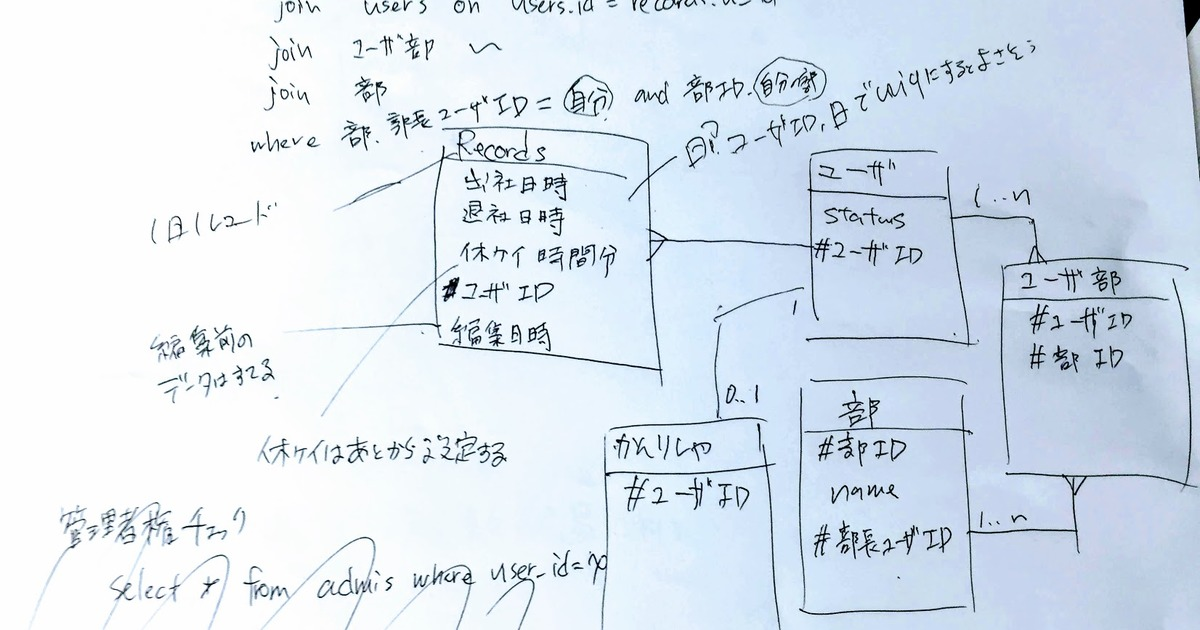 join users on users.id = records.
join ユーザ部 〜
join 部
where 部.部長ユーザID = 自分 and 部ID.自分の部
日? ユーザID, 日でuniqにするとよさそう
Records
出社日時
退社日時
休ケイ時間分
#ユーザID
編集日時
1日1レコード
編集前の
データはすてる
休ケイはあとから設定する
ユーザ
status
#ユーザID
1..n
ユーザ部
#ユーザID
#部ID
1
0..1
かんりしゃ
#ユーザID
部
#部ID
name
#部長ユーザID
1..n
管理者権チェック
select * from admis where user_id=